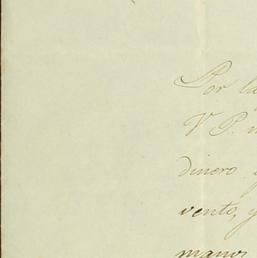 Por la
V. P.
dinero
vento, y
manos